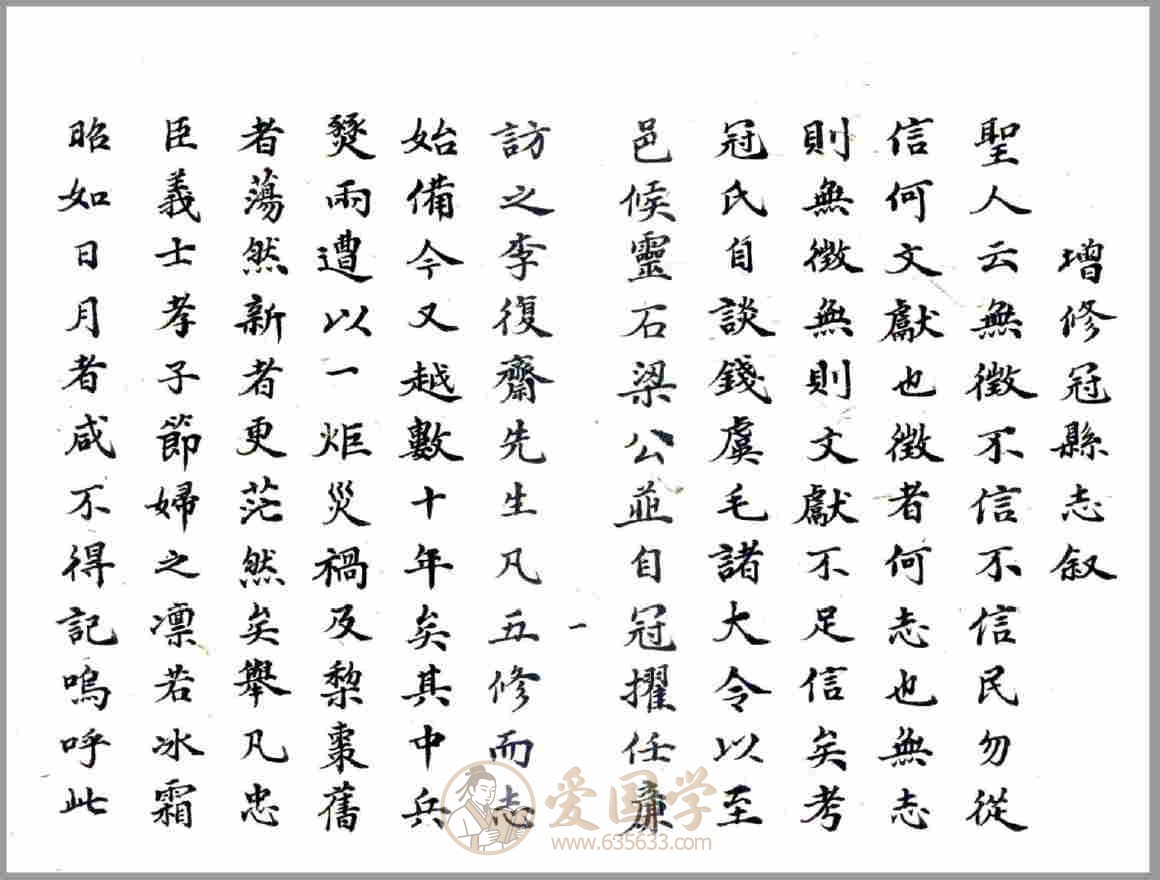 增修冠縣志叙
聖人云無徵不信不信民勿從
信何文獻也徵者何志也無志
則無徵無則文獻不足信矣考
冠氏自談錢虞毛諸大令以至
邑候靈石梁公並自冠擢任廉
一
訪之李復齋先生凡五修而志
始備今又越數十年矣其中兵
燹雨遭以一炬災禍及棃棗舊
者蕩然新者更茫然矣舉凡忠
臣義士孝子節婦之凛若冰霜
昭如日月者咸不得記嗚呼此
爱国学
www.635633.com